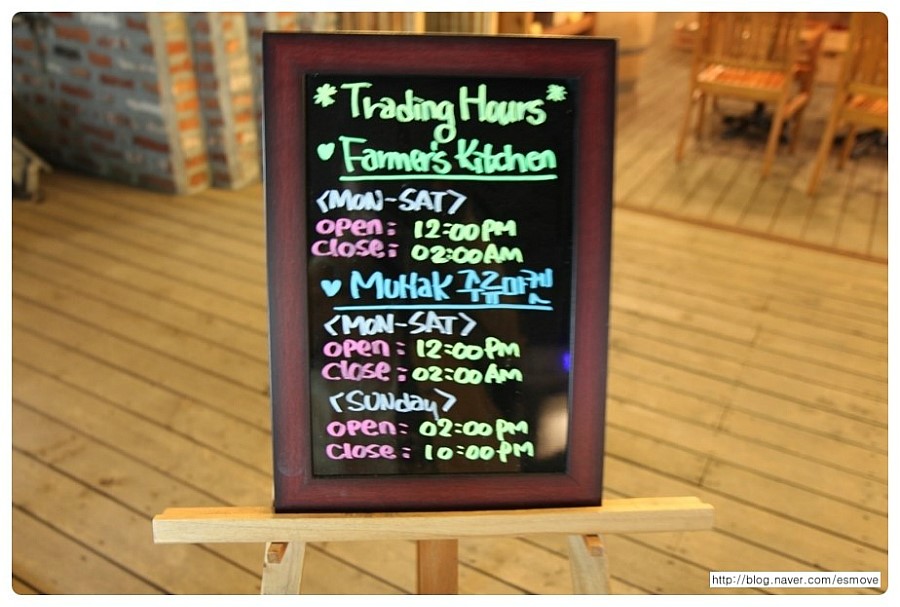 * Trading Hours *
♥ Farmer's Kitchen
<MON-SAT>
open: 12:00PM
close: 02:00AM
♥ MuHak 주류마켓
<MON-SAT>
open: 12:00PM
close: 02:00AM
<SUNday>
open: 02:00PM
close: 10:00PM
http://blog.naver.com/esmove